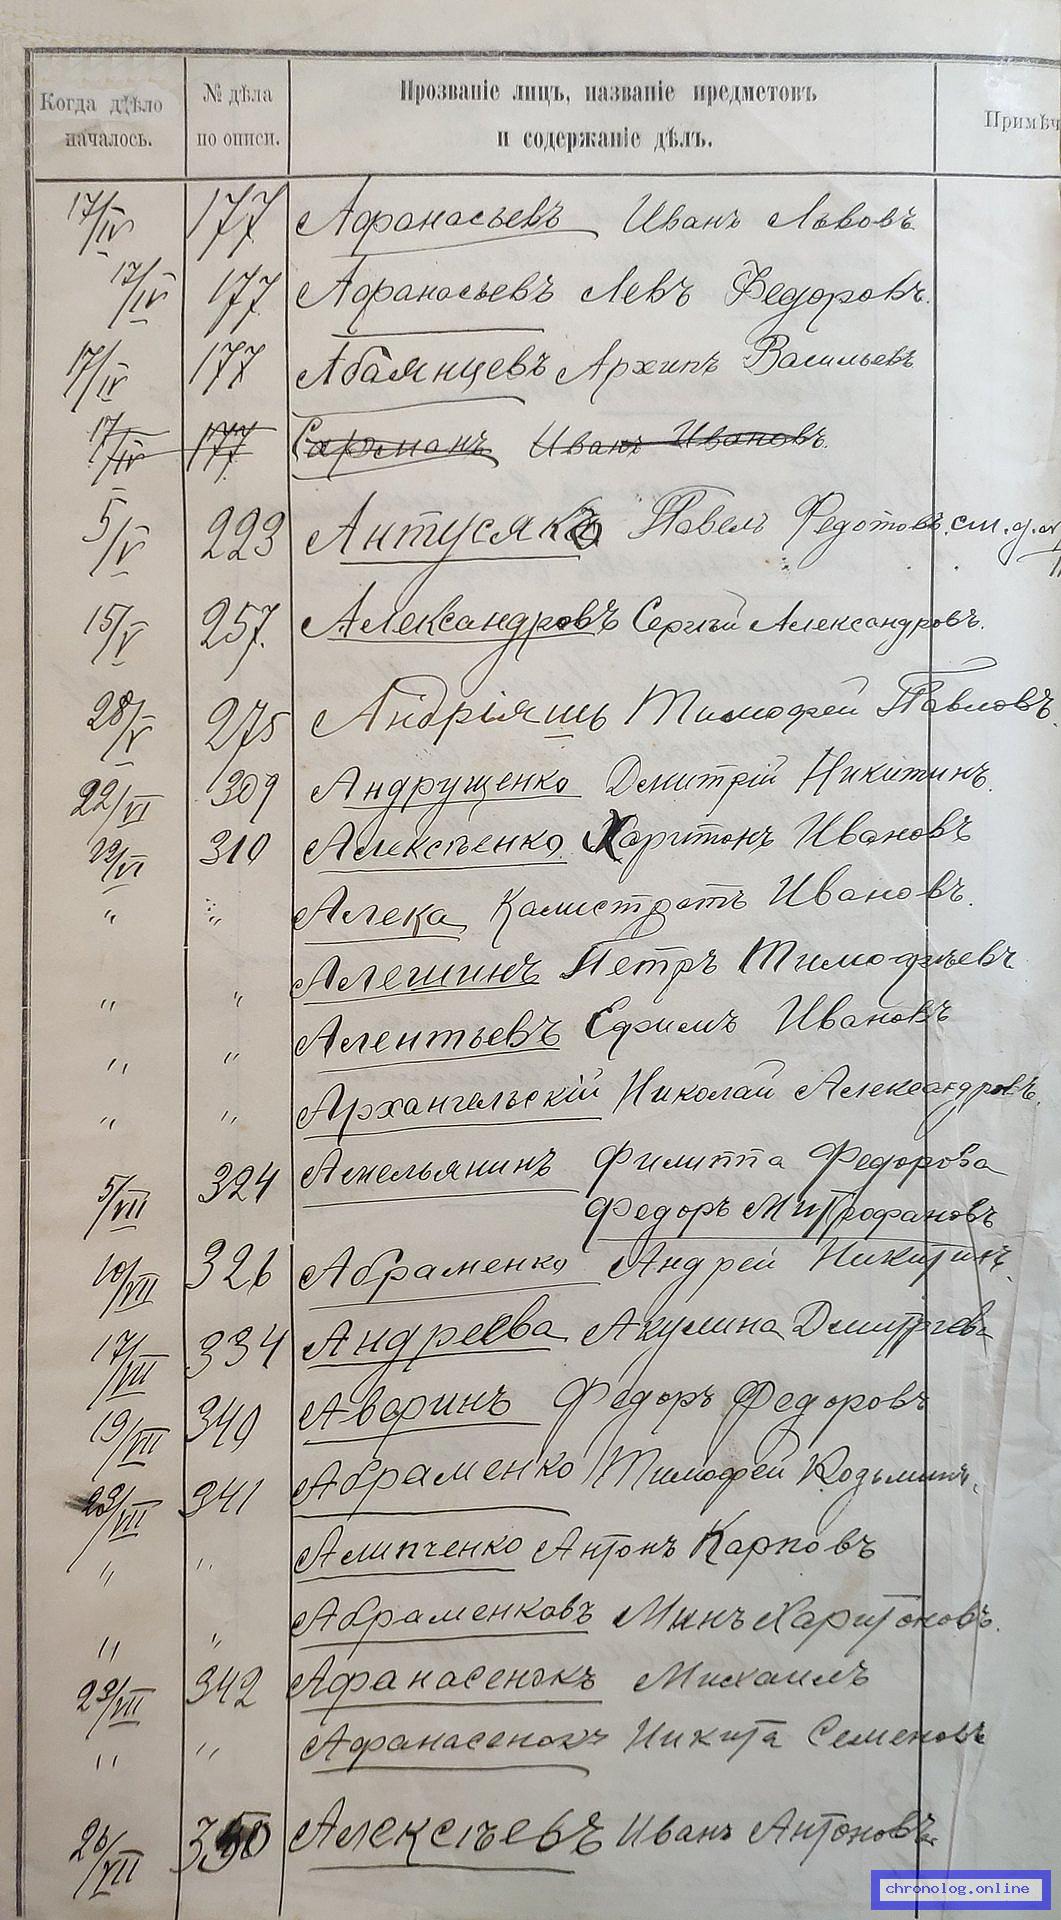 Когда дѣло началось.
№ дѣла по описи.
Прозваніе лицъ, названіе предметовъ и содержаніе дѣлъ.
Примѣч
17/IV 177 Афанасьевъ Иванъ Львовъ
17/IV 177 Афанасьевъ Левъ Федоровъ.
17/IV 177 Абаянцевъ Архипъ Васильевъ
17/IV 177 Иванъ Ивановъ.
5/V 223 Антусякъ Павелъ Федотовъ. см. д.
15/V 257. Александровъ Сергѣй Александровъ.
28/V 275 Андріяшъ Тимофей Павловъ.
22/VI 309 Андрущенко Дмитрій Никитинъ.
22/VI 310 Алексѣенко Харитонъ Ивановъ
" " Алека Калистратъ Ивановъ.
" " Алешинъ Петръ Тимофѣевъ
" " Алентьевъ Ефимъ Ивановъ
" " Архангельскій Николай Александровъ.
5/VII 324 Амельянинъ Филиппа Федорова
Федоръ Митрофановъ
10/VII 326 Абраменко Андрей Никитинъ.
17/VII 334 Андреева Акулина Дмитріева
19/VII 340 Аваринъ Федоръ Федоровъ
23/VII 341 Абраменко Тимофей Козьминъ.
" " Алипченко Антонъ Карповъ
" " Абраменковъ Минъ Харитоновъ.
23/VII 342 Афанасенокъ Михаилъ
" " Афанасенокъ Никита Семеновъ
26/VII 350 Алексѣевъ Иванъ Антоновъ.
chronolog.online